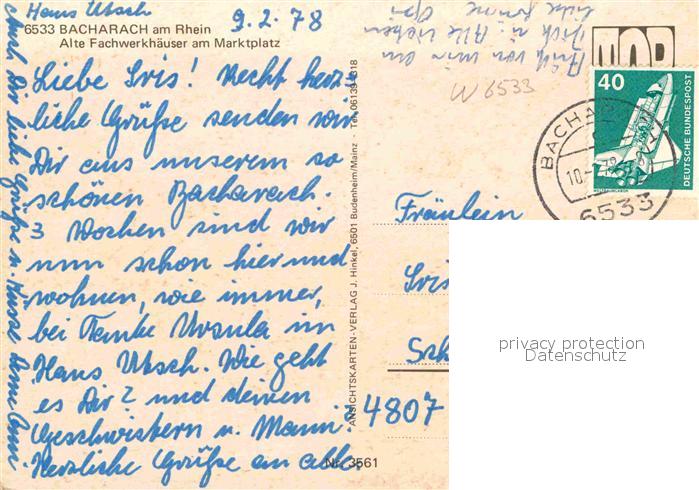 Haus Utsch
9. 2. 78
6533 BACHARACH am Rhein
Alte Fachwerkhäuser am Marktplatz
Liebe Iris! Recht herz-
liche Grüße senden wir
Dir aus unserem so
schönen Bacharach.
3 Wochen sind wir
nun schon hier und
wohnen, wie immer,
bei Tante Ursula im
Haus Utsch. Wie geht
es Dir? und deinen
Geschwistern u. Mammi?
Herzliche Grüße an alle.
Auch Dir liebe Grüße u. Küsse
ANSICHTSKARTEN-VERLAG J. Hinkel, 6501 Budenheim/Mainz Tel. 06139-318
Nr. 3561
W 6533
40
DEUTSCHE BUNDESPOST
BACHA
10.
6533
Fräulein
Iris
Sch
4807
privacy protection
Datenschutz